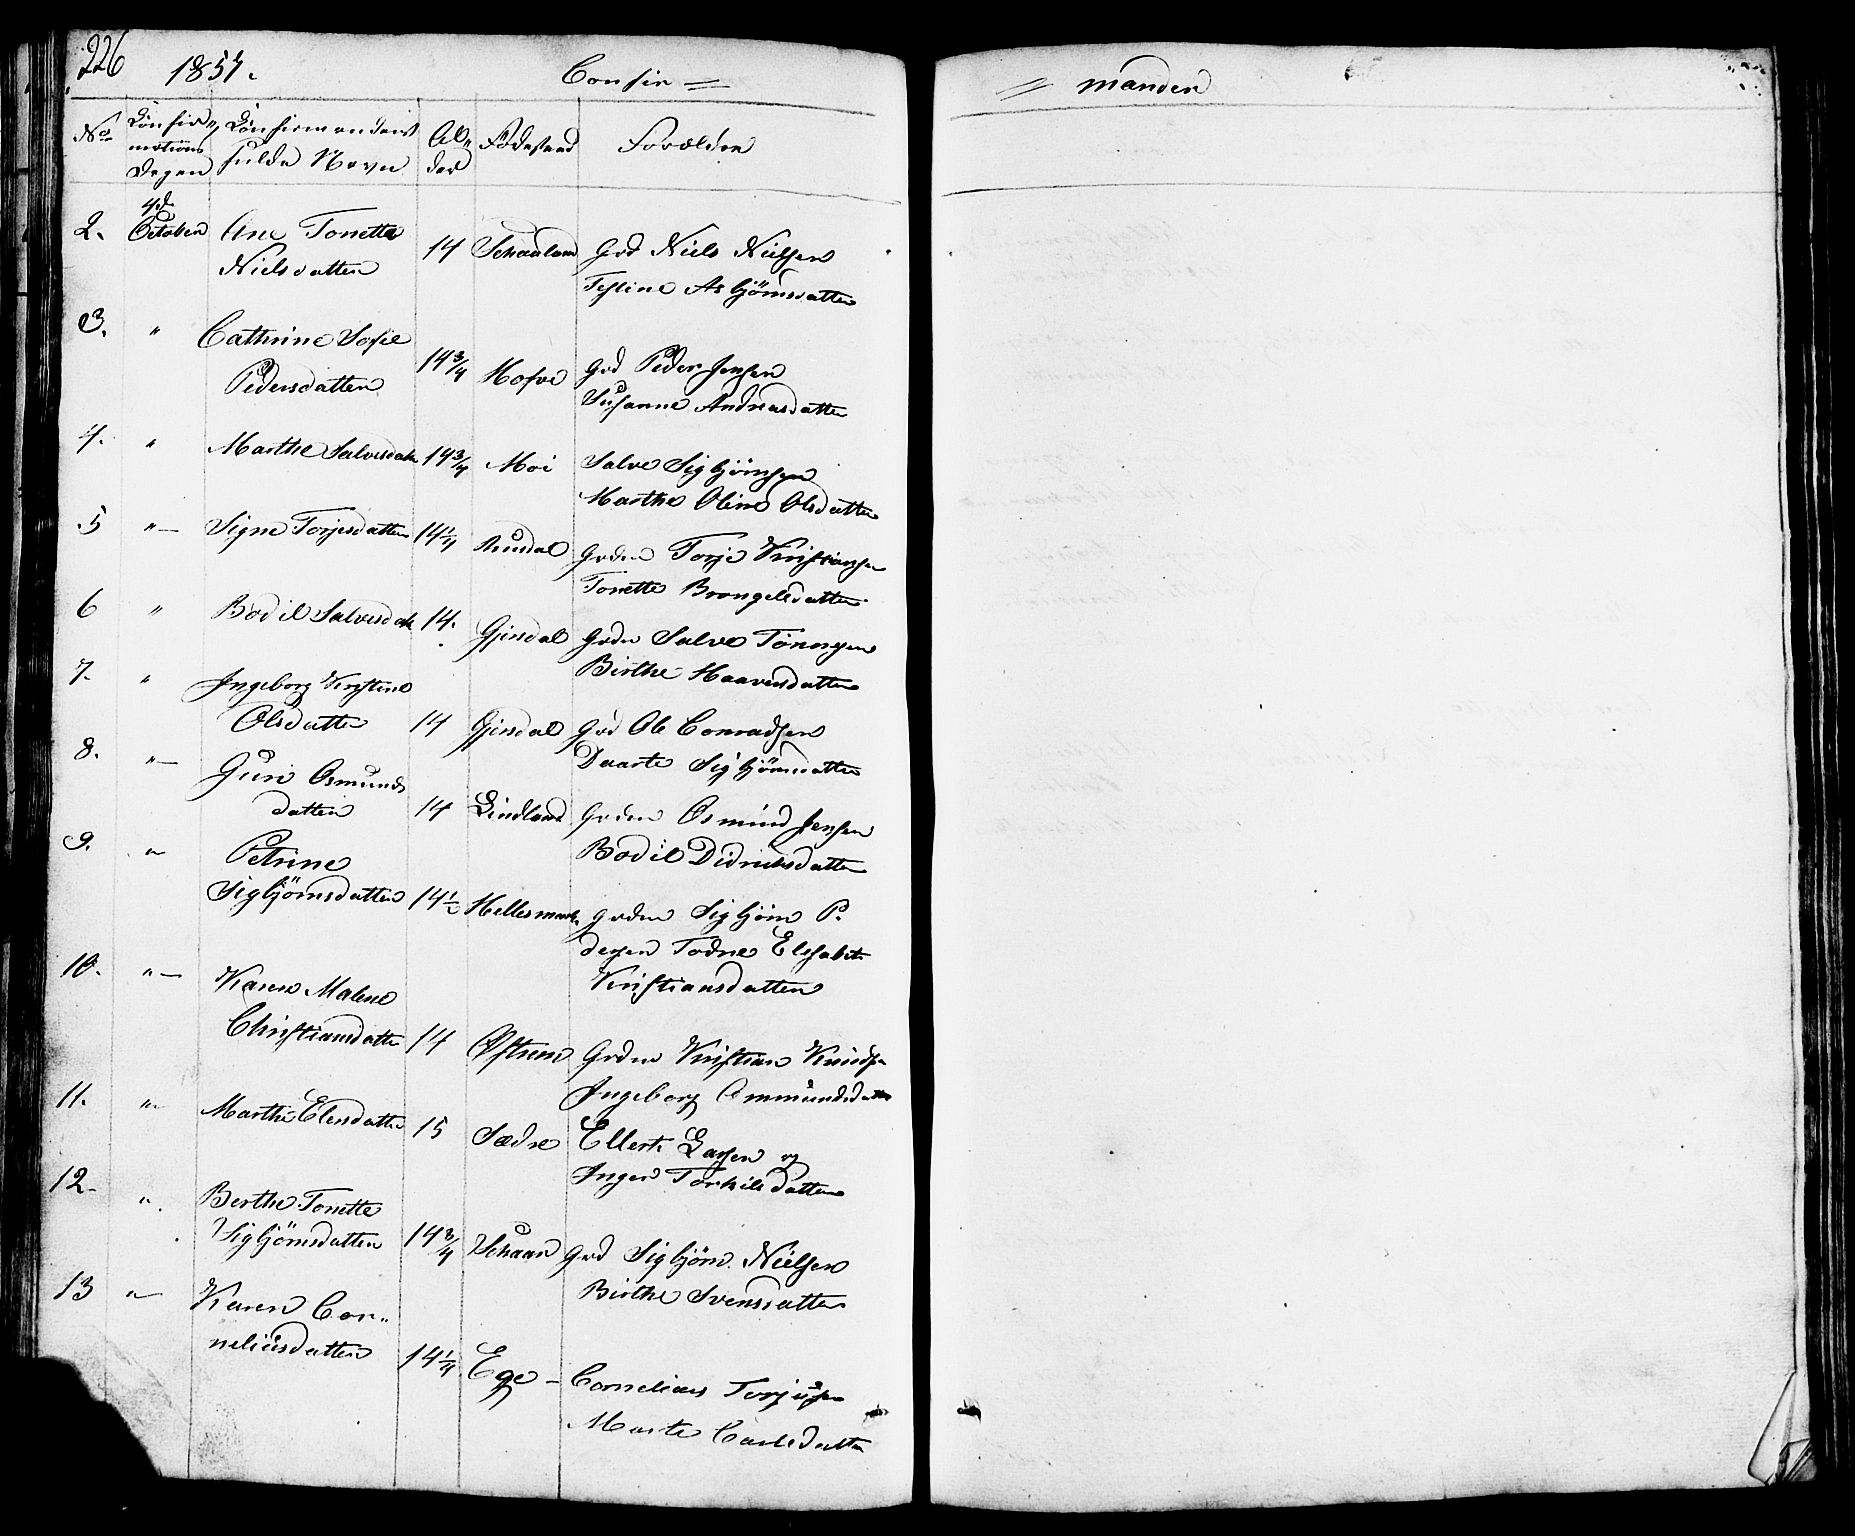 226
1857.
Confir =
= mander
No
Confir=
mations
Dagen
Confirmandens
fulde Navn
Al=
der
Fødested
Forældre
2. 4d October Ane Tonette 14 Schaaland Grd Niels Nielsen
Nielsdatter
Asbjörnsdatter
3. " Cathrine Sofie
Pedersdatter 14 3/4 Grd Peder Jensen
Susanne Andreasdatter
4. " Marthe Salvesdatr 14 3/4 Moi Salve Sigbjörnsen
Marthe Oline Olsdatter
5 " Signe Torjesdatter 14 1/4 Grdm Torje Kristiansen
Tonette Brongelsdatter
6 " Bodil Salvesdatr 14. Gjersdal Grdm Salve Tönnesen
Birthe Haaversdatter
7. " Ingeborg Kirstine
Olsdatter 14 Gjersdal Grd Ole Conradsen
Daarte Sigbjörnsdatter
8. " Guri Osmunds
datter 14 Lindland Grdm Osmund Jensen
Bodil Didriksdatter
9. " Petrine
Sigbjörnsdatter 14 1/2 Grdm Sigbjörn P.
dersen Todne Elisabet
Kristiansdatter
10. " Karen Malene
Christiansdatter 14 Østrem Grdm Kristian Knuds
Ingeborg Ommundsdatter
11. " Marthe Elersdatter 15 Sædre Ellert Larsen og
Inger Torkilsdatter
12. " Berthe Tonette
Sigbjörnsdatter 14 3/4 Schaar Grd Sigbjörn Nielsen
Birthe Svensdatter
13 " Karen Cor=
neliusdatter 14 1/4 Ege - Cornelius Torjusen
Marte Carlsdatter